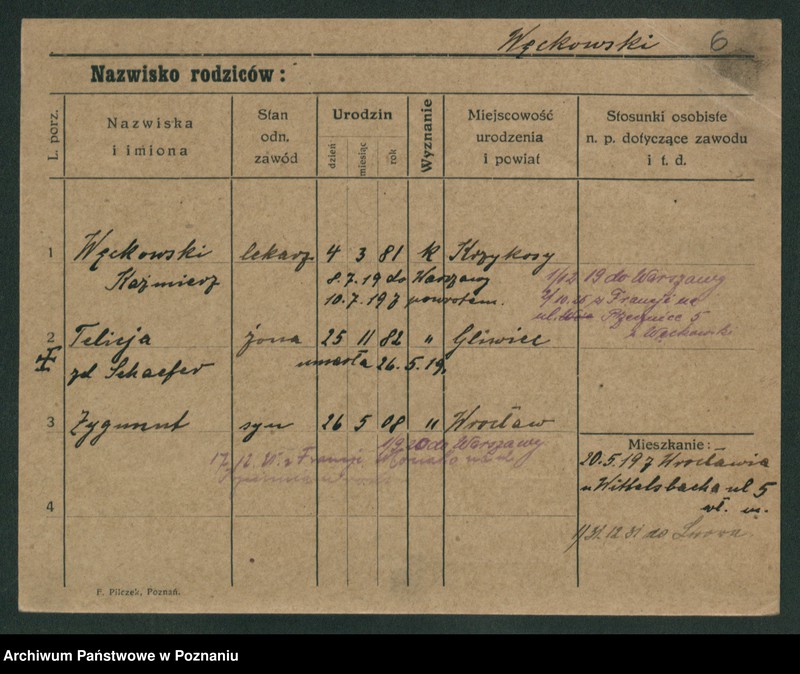 Węckowski 6
Nazwisko rodziców:
L. porz.
Nazwiska
i imiona
Stan
odn.
zawód
Urodzin
dzień
miesiąc
rok
Wyznanie
Miejscowość
urodzenia
i powiat
Stosunki osobiste
n. p. dotyczące zawodu
i t. d.
1 Węckowski lekarz 4 3 81 k Krzykosy
Kaźmierz 8.7.19 do Warszawy
10.7.19 z powrotem.
1/12 19 do Warszawy
z Francji na
ul. 5
z Węckowsk
2 Felicja żona 25 11 82 " Gliwice
zd Schaefer umarła 26.5.19.
3 Zygmunt syn 26 5 08 " Wrocław
1/9 20 do Warszawy
z Francji
Mieszkanie:
20.5.19 z Wrocławia
u Wittelsbacha ul 5
wł. m.
4
1/31.12 31 do
F. Pilczek, Poznań.
Archiwum Państwowe w Poznaniu